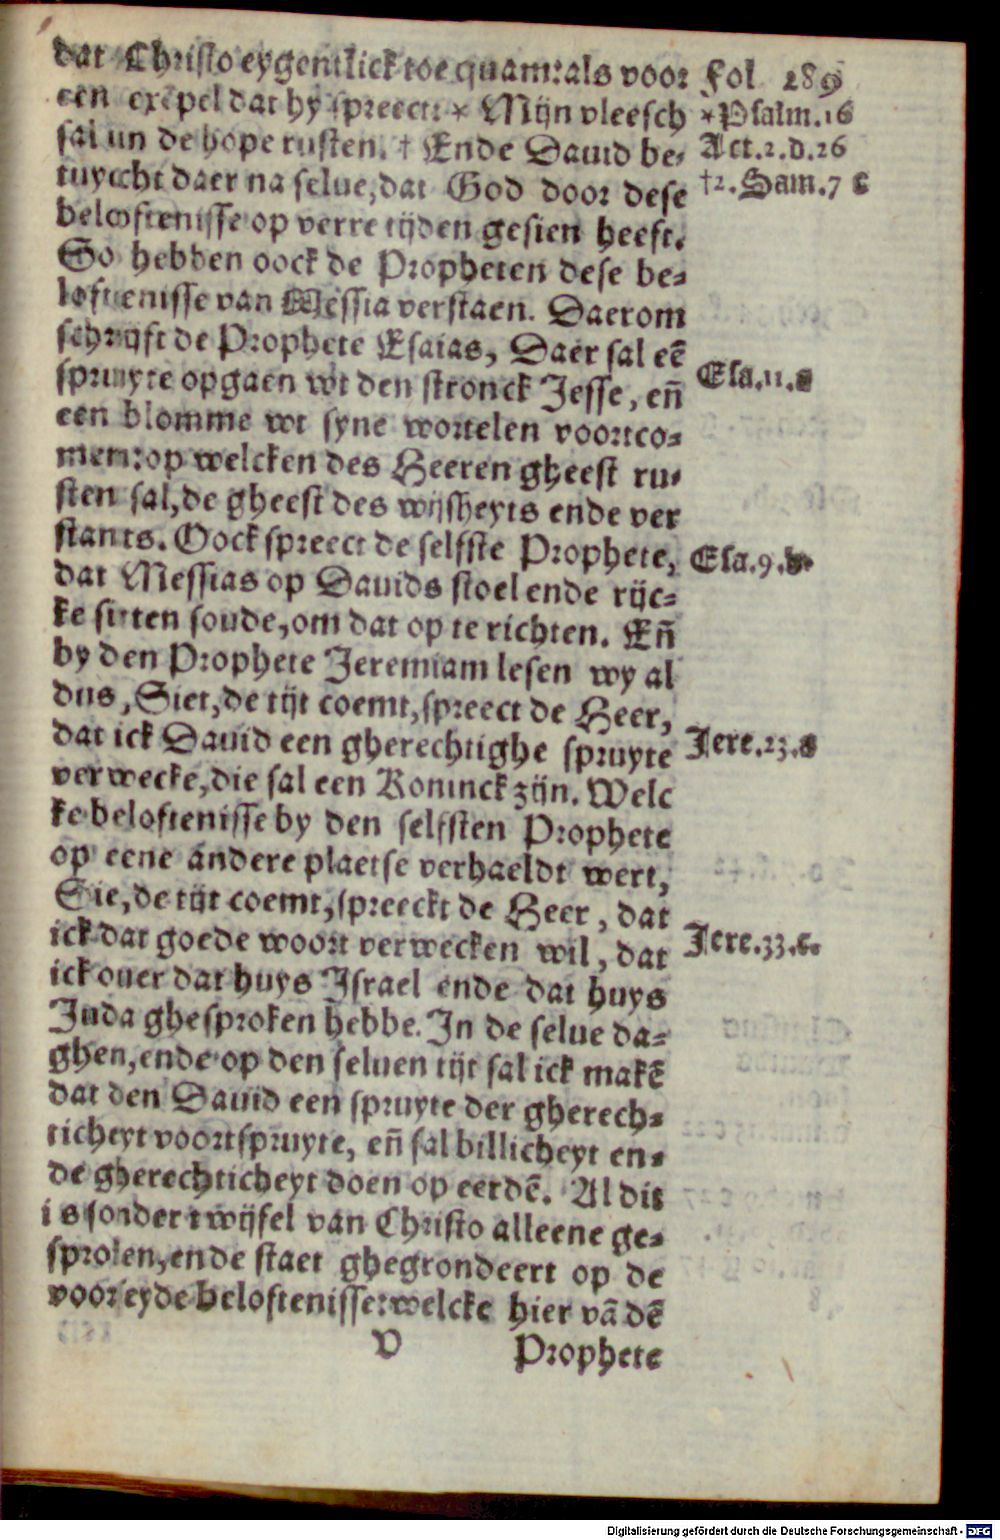 dat Christo eygentlick toe quam: als voor
Fol 289
een exēpel dat hy spreect: * Mijn vleesch
*Psalm.16
sal in de hope rusten. † Ende Dauid be-
Act.2.d.26
tuycht daer na selue, dat God door dese
†2.Sam.7 c
beloftenisse op verre tijden gesien heeft.
So hebben oock de Propheten dese be-
loftenisse van Messia verstaen. Daerom
schrijft de Prophete Esaias, Daer sal eē
spruyte opgaen wt den stronck Jesse, eñ
Esa.11.a
een blomme wt syne wortelen voortco-
men: op welcken des Heeren gheest ru-
sten sal, de gheest des wijsheyts ende ver
stants. Oock spreect de selfste Prophete,
Esa.9.b
dat Messias op Dauids stoel ende rijc-
ke sitten soude, om dat op te richten. Eñ
by den Prophete Jeremiam lesen wy al
dus, Siet, de tijt coemt, spreect de Heer,
dat ick Dauid een gherechtighe spruyte
Jere.23.a
verwecke, die sal een Koninck zijn. Welc
ke beloftenisse by den selfsten Prophete
op eene andere plaetse verhaeldt wert,
Sie, de tijt coemt, spreeckt de Heer, dat
ick dat goede woort verwecken wil, dat
Jere.33.c.
ick ouer dat huys Israel ende dat huys
Juda ghesproken hebbe. In de selue da-
ghen, ende op den seluen tijt sal ick makē
dat den Dauid een spruyte der gherech-
ticheyt voortspruyte, eñ sal billicheyt en-
de gherechticheyt doen op eerdē. Al dit
is sonder twijfel van Christo alleene ge-
sproken, ende staet ghegrondeert op de
vooreyde beloftenisse: welcke hier vā dē
V
Prophete
Digitalisierung gefördert durch die Deutsche Forschungsgemeinschaft - DFG